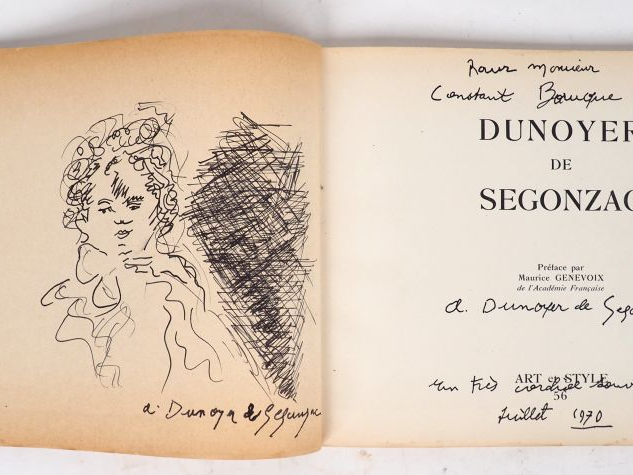 a. Dunoyer de Segonzac
Pour monsieur
Constant Bourque
DUNOYER
DE
SEGONZAC
Préface par
Maurice GENEVOIX
de l'Académie Française
A. Dunoyer de Sego
ART et STYLE
56
un très cordial souv
Juillet 1970